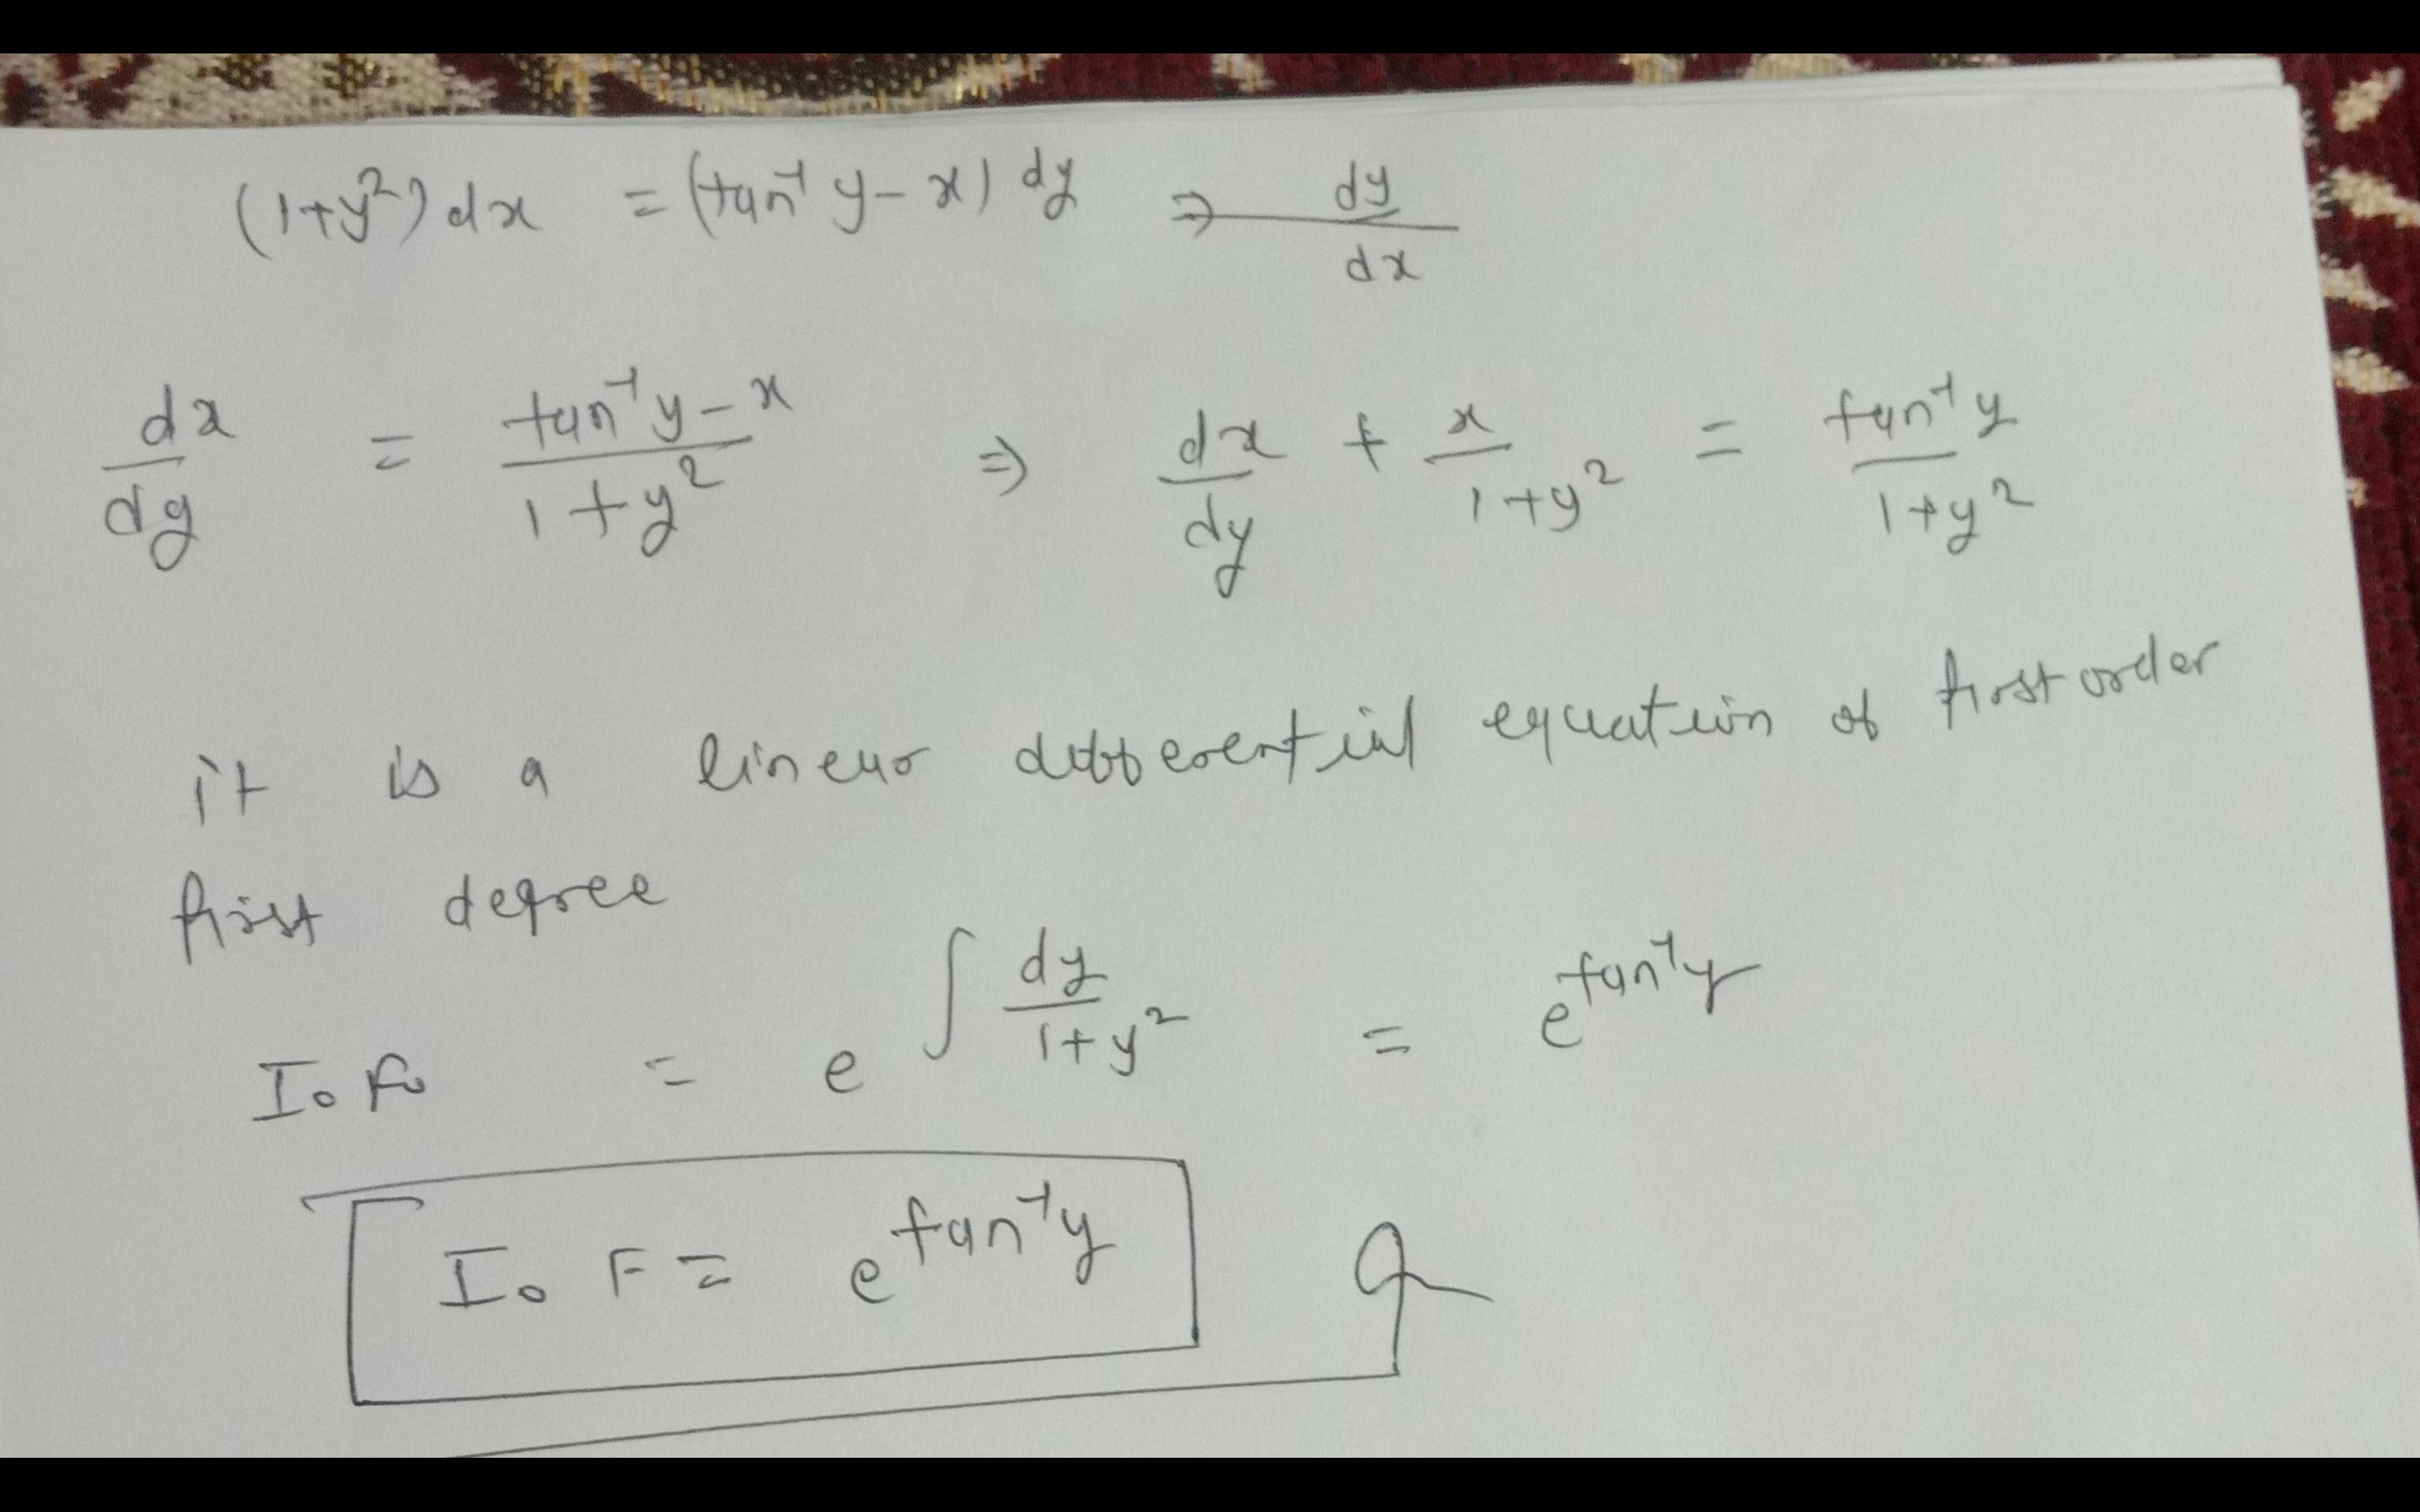 (1+y²) dx = (tan⁻¹ y - x) dy ⇒ dy/dx
dx/dy = (tan⁻¹ y - x)/(1+y²) ⇒ dx/dy + x/(1+y²) = tan⁻¹ y/(1+y²)
it is a linear differential equation of first order
first degree
I. F. = e^(∫ dy/(1+y²)) = e^(tan⁻¹ y)
I. F = e^(tan⁻¹ y)